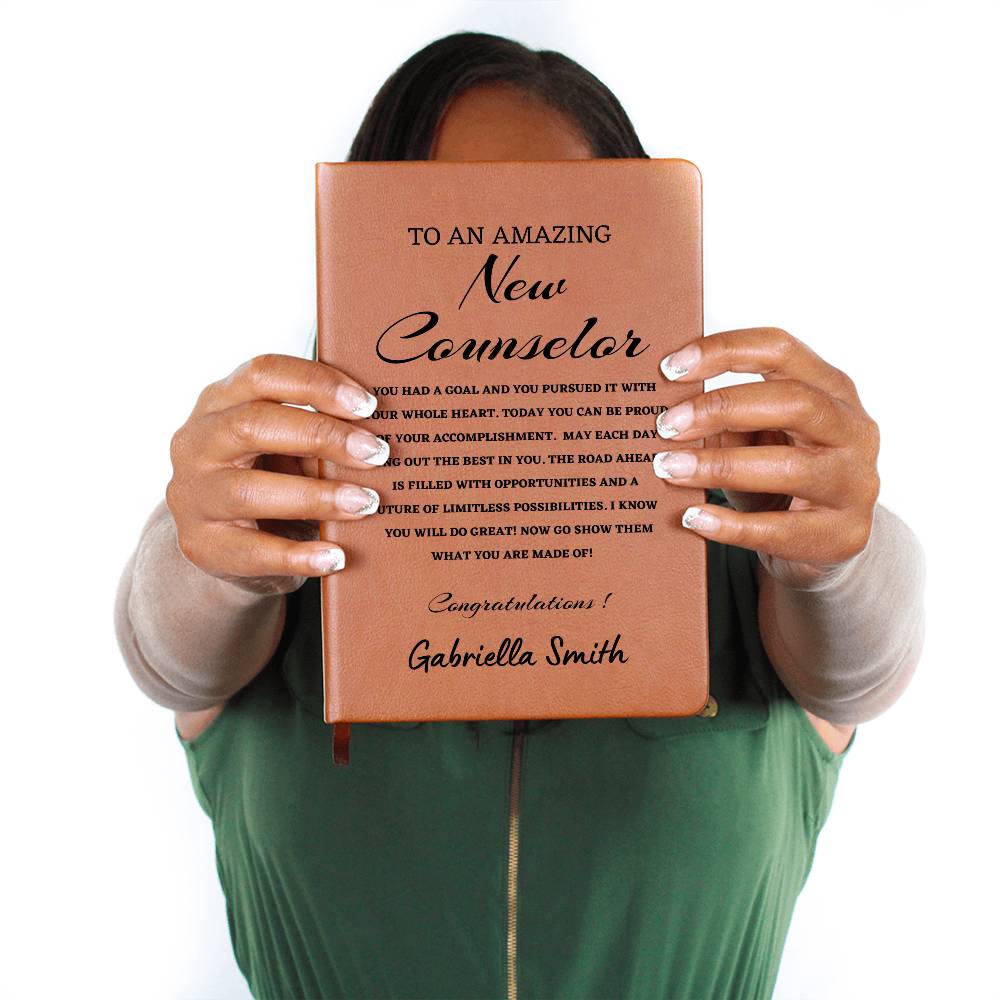 TO AN AMAZING
New
Counselor
YOU HAD A GOAL AND YOU PURSUED IT WITH
YOUR WHOLE HEART. TODAY YOU CAN BE PROUD
OF YOUR ACCOMPLISHMENT. MAY EACH DAY
OUT THE BEST IN YOU. THE ROAD AHEAD
IS FILLED WITH OPPORTUNITIES AND A
FUTURE OF LIMITLESS POSSIBILITIES. I KNOW
YOU WILL DO GREAT! NOW GO SHOW THEM
WHAT YOU ARE MADE OF!
Congratulations !
Gabriella Smith